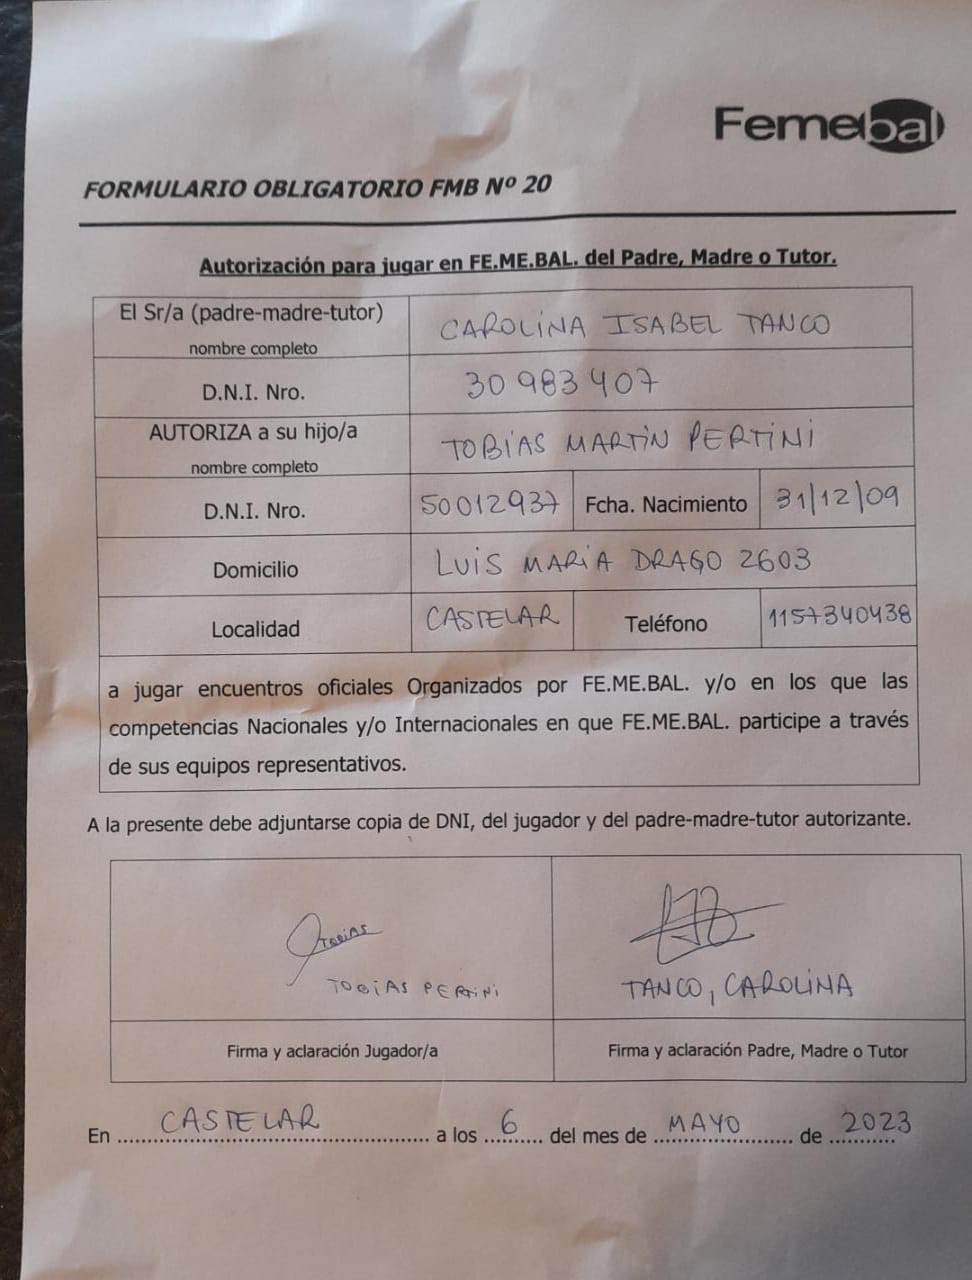 Femebal
FORMULARIO OBLIGATORIO FMB Nº 20
Autorización para jugar en FE.ME.BAL. del Padre, Madre o Tutor.
El Sr/a (padre-madre-tutor)
nombre completo
CAROLINA ISABEL TANCO
D.N.I. Nro.
30 983 407
AUTORIZA a su hijo/a
nombre completo
TOBÍAS MARTIN PERTINI
D.N.I. Nro.
50012937
Fcha. Nacimiento
31/12/09
Domicilio
LUIS MARIA DRAGO 2603
Localidad
CASTELAR
Teléfono
1157340438
a jugar encuentros oficiales Organizados por FE.ME.BAL. y/o en los que las
competencias Nacionales y/o Internacionales en que FE.ME.BAL. participe a través
de sus equipos representativos.
A la presente debe adjuntarse copia de DNI, del jugador y del padre-madre-tutor autorizante.
TOBIAS
TOBIAS PERTINI
TANCO, CAROLINA
Firma y aclaración Jugador/a
Firma y aclaración Padre, Madre o Tutor
En CASTELAR a los 6 del mes de MAYO de 2023